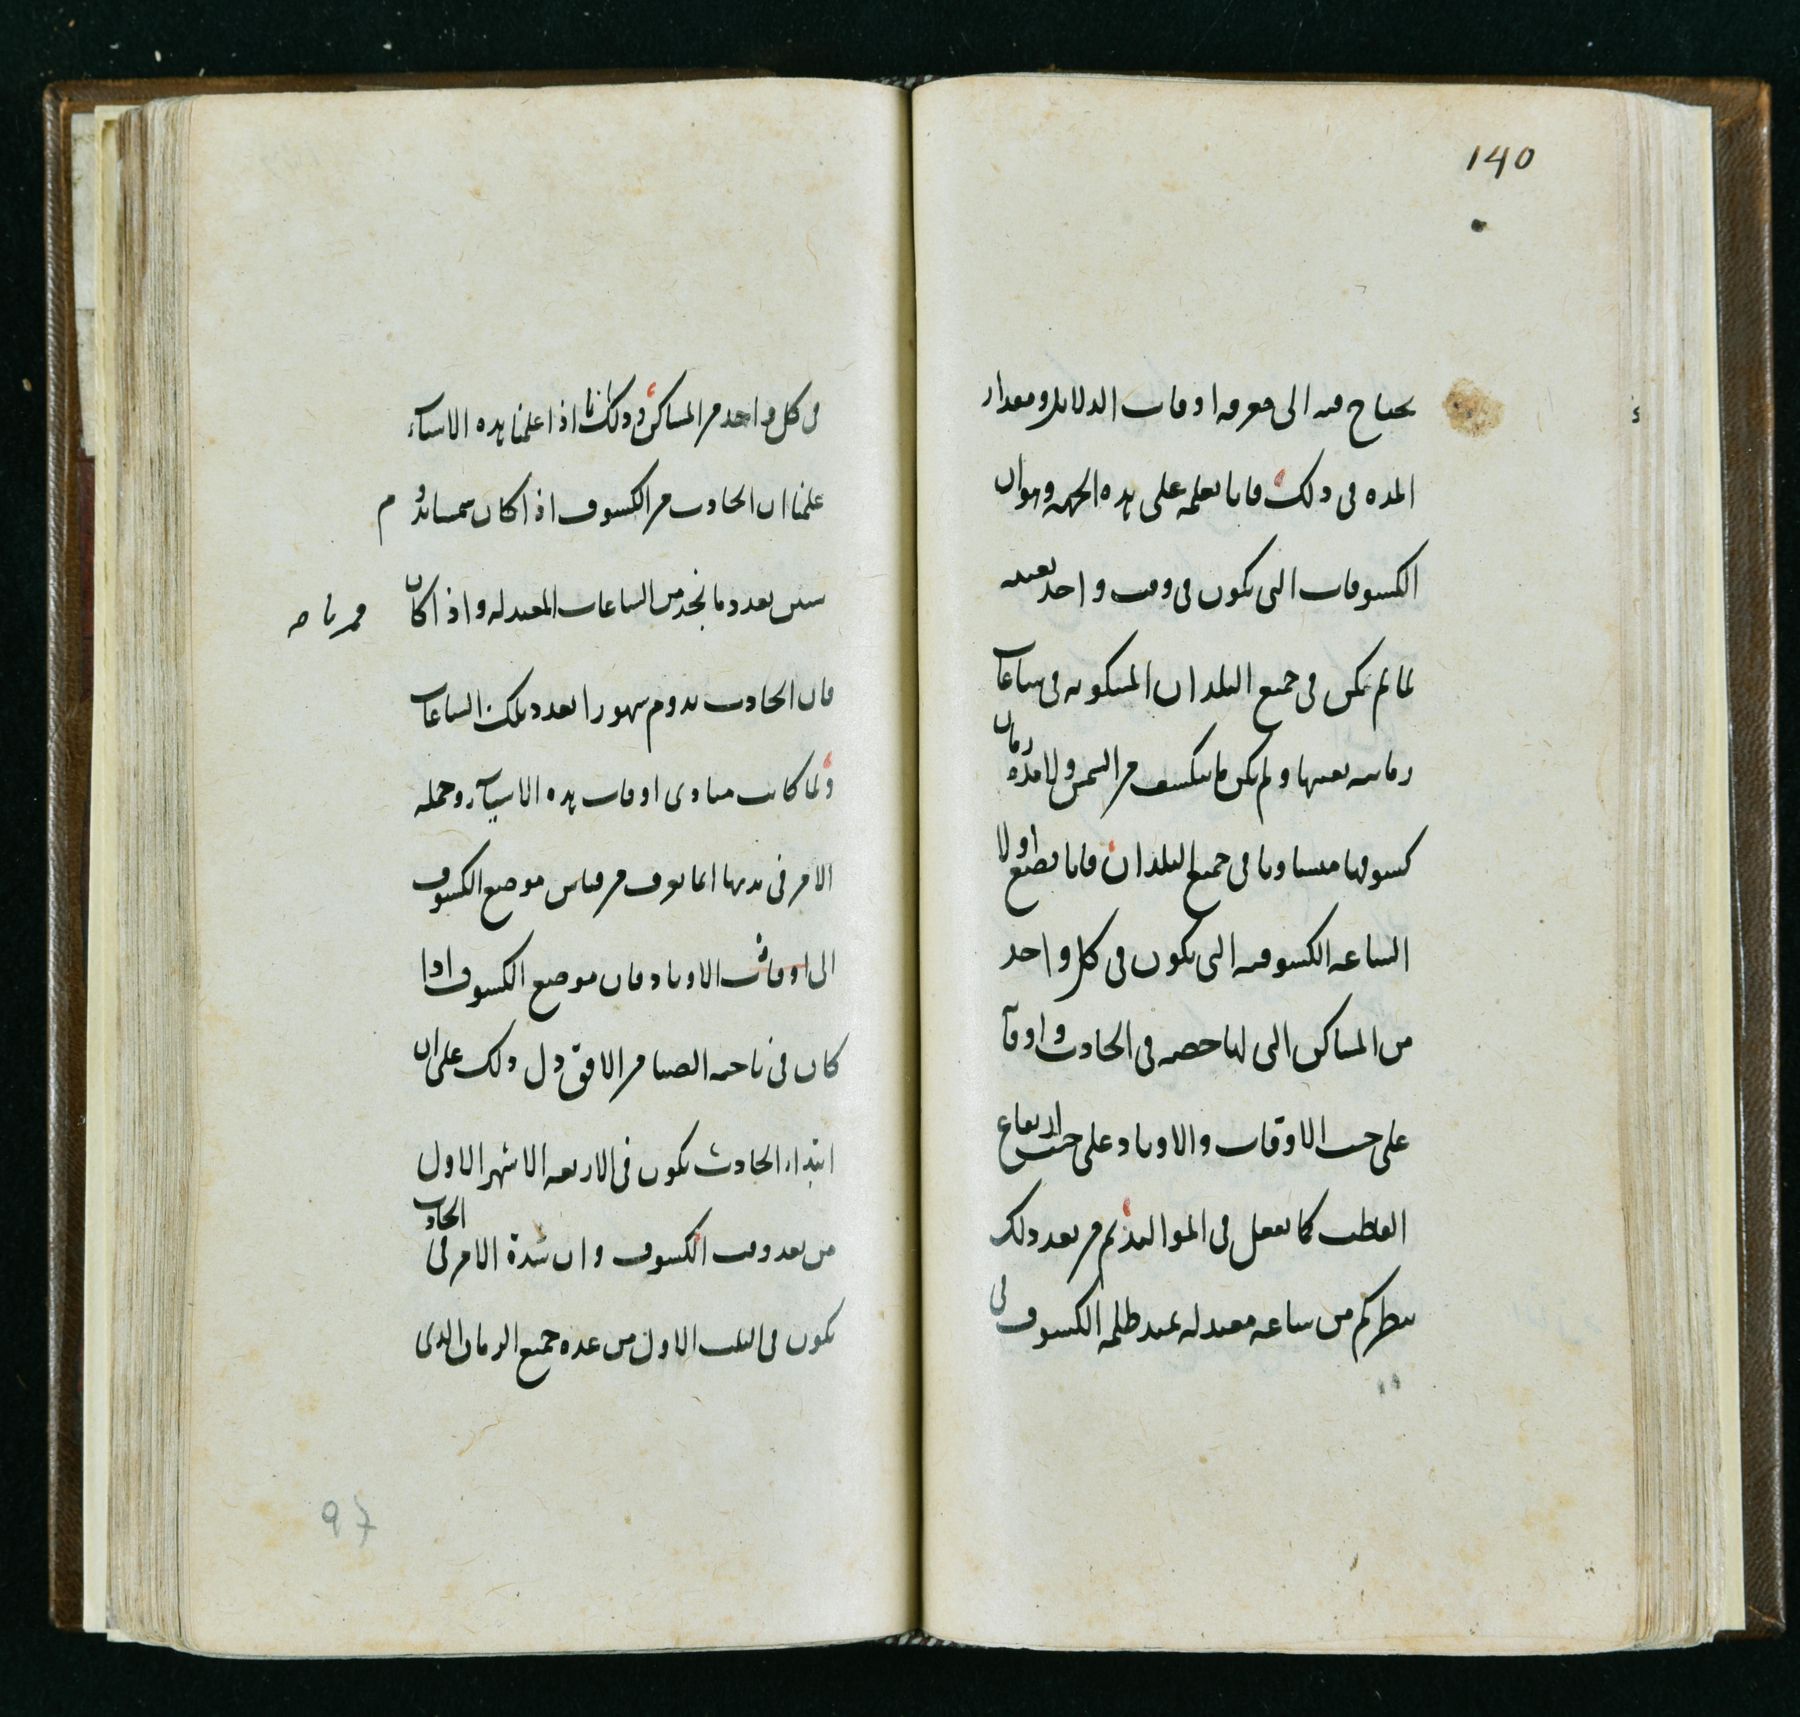 140
يحتاج فيه الى معرفة اوقات الدلايل ومقدار
المده فى ذلك فانا نعلمه على هذه الجهه وهو ان
الكسوفات التى تكون فى وقت واحد بعينه
لما لم تكن فى جميع البلدان المسكونه فى ساعات
زمانيه بعينها ولم يكن ما ينكسف من الشمس ولا مده زمان
كسوفها متساويا فى جميع البلدان فانا نضع اولا
الساعه الكسوفيه التى تكون فى كل واحد
من المساكن التى لها حصه فى الحادث واوقات
على حسب الاوقات والاوتاد على حسب ارتفاع
القطب كما نفعل فى المواليد ثم من بعد ذلك
ننظر كم من ساعه معتدله عند ظلمه الكسوف فى
فى كل واحد من المساكن وذلك انا اذا علمنا هذه الاشياء
علمنا ان الحادث من الكسوف اذا كان شمسيا يدوم
سنين بعدد ما نجد من الساعات المعتدله واذا كان قمريا صه
فان الحادث يدوم شهورا بعدد تلك الساعات
ولما كانت مبادى اوقات هذه الاشياء وجمله
الامر فى شدتها انما تعرف من قياس موضع الكسوف
الى اوقات الاوتاد فان موضع الكسوف اذا
كان فى ناحيه الصبا من الافق دل ذلك على ان
ابتداء الحادث يكون فى الاربعه الاشهر الاول
من بعد وقت الكسوف وان شدة الامر فى الحادث
تكون فى الثلث الاول من عده جميع الزمان الذى
97